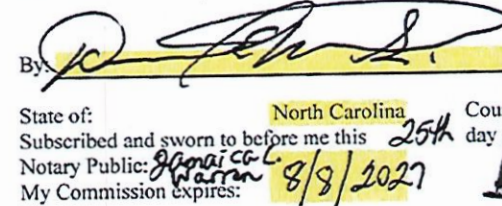 By:
State of: North Carolina Cou
Subscribed and sworn to before me this 25th day
Notary Public: Jamaica C. Warren
My Commission expires: 8/8/2027